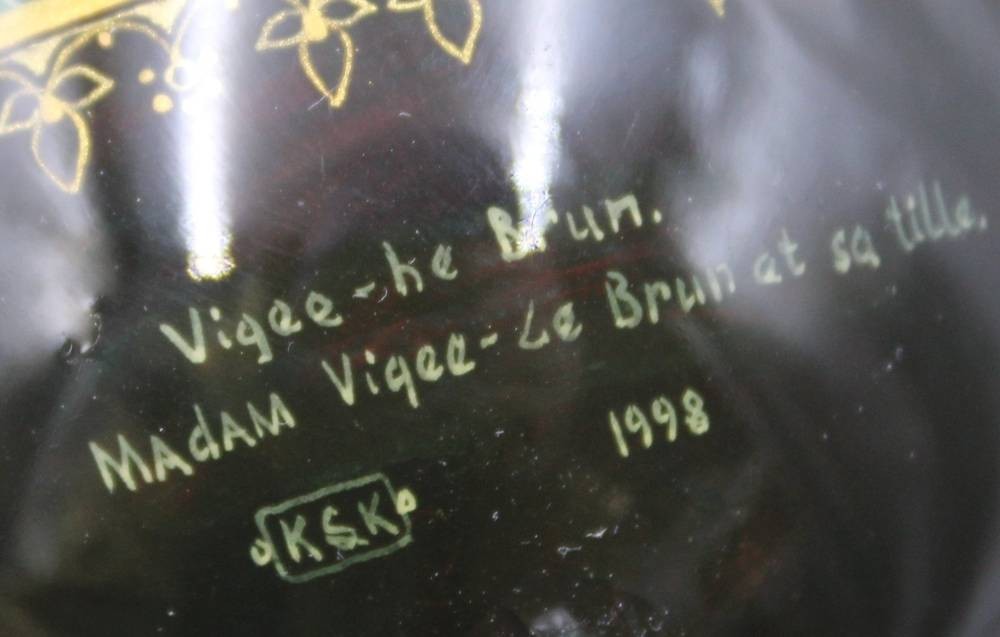 Vigee-he Brun.
MAdAM Vigee-Le Brun et sa tille.
1998
KSK